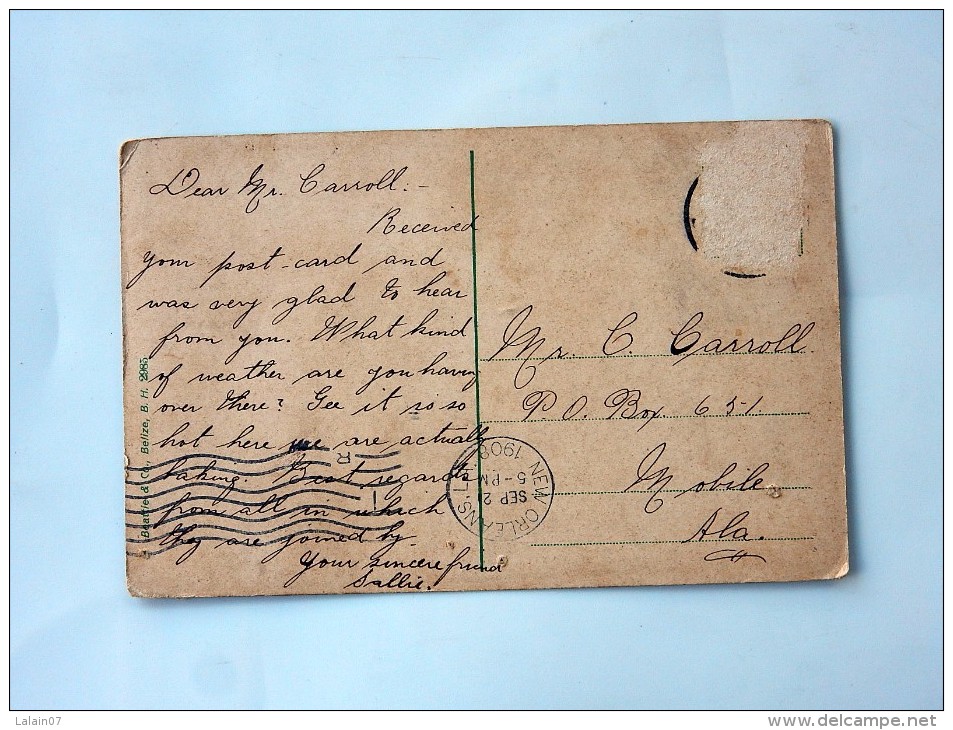 Dear Mr. Carroll:-
Received
your post-card and
was very glad to hear
from you. What kind
of weather are you having
over there? Gee it is so
hot here we are actually
baking. Best regards
from all in which
they are joined by.
Your sincere friend
Sallie.
Mr. C. Carroll.
P. O. Box. 651.
Mobile
Ala.
NEW ORLEANS, LA.
SEP 2
5-PM
1908
R
1
Beattie & Co., Belize, B. H. 2985
Lalain07
www.delcampe.net